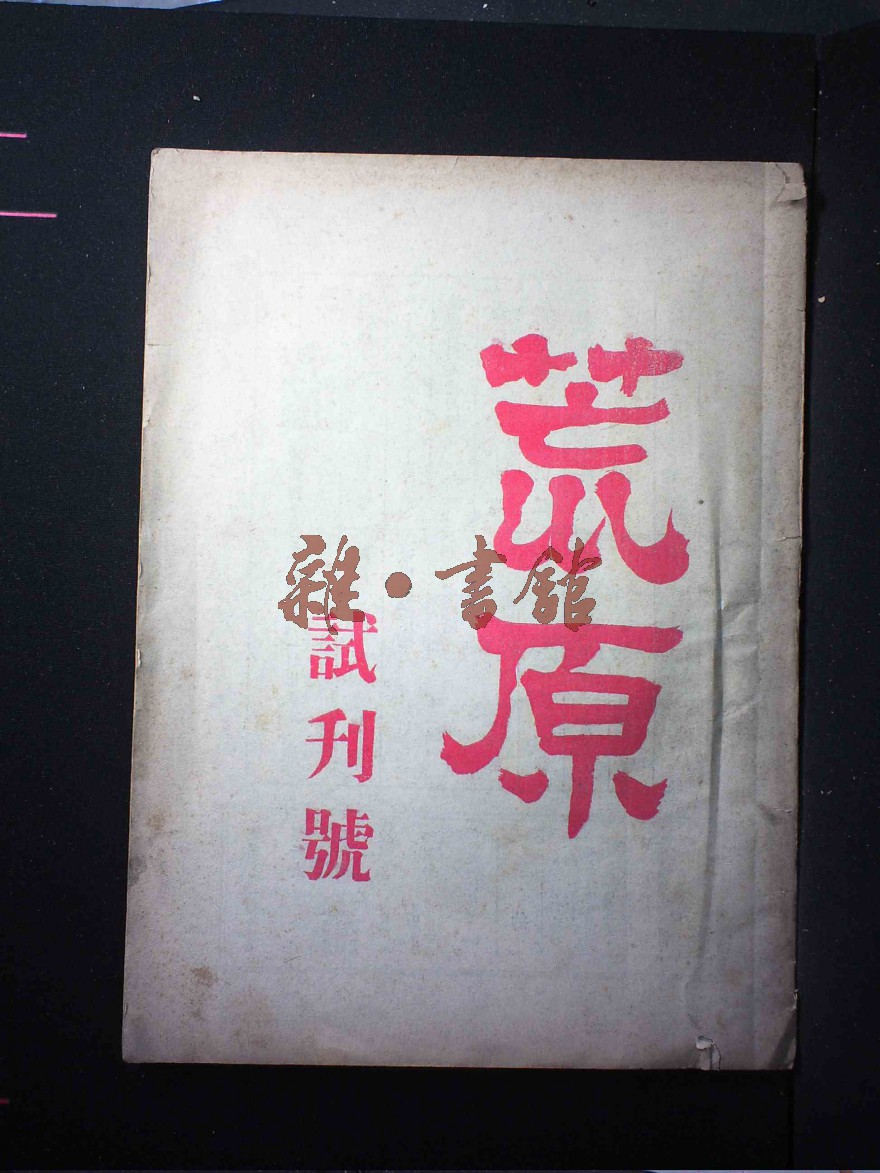 荒原
試刊號
雜·書館